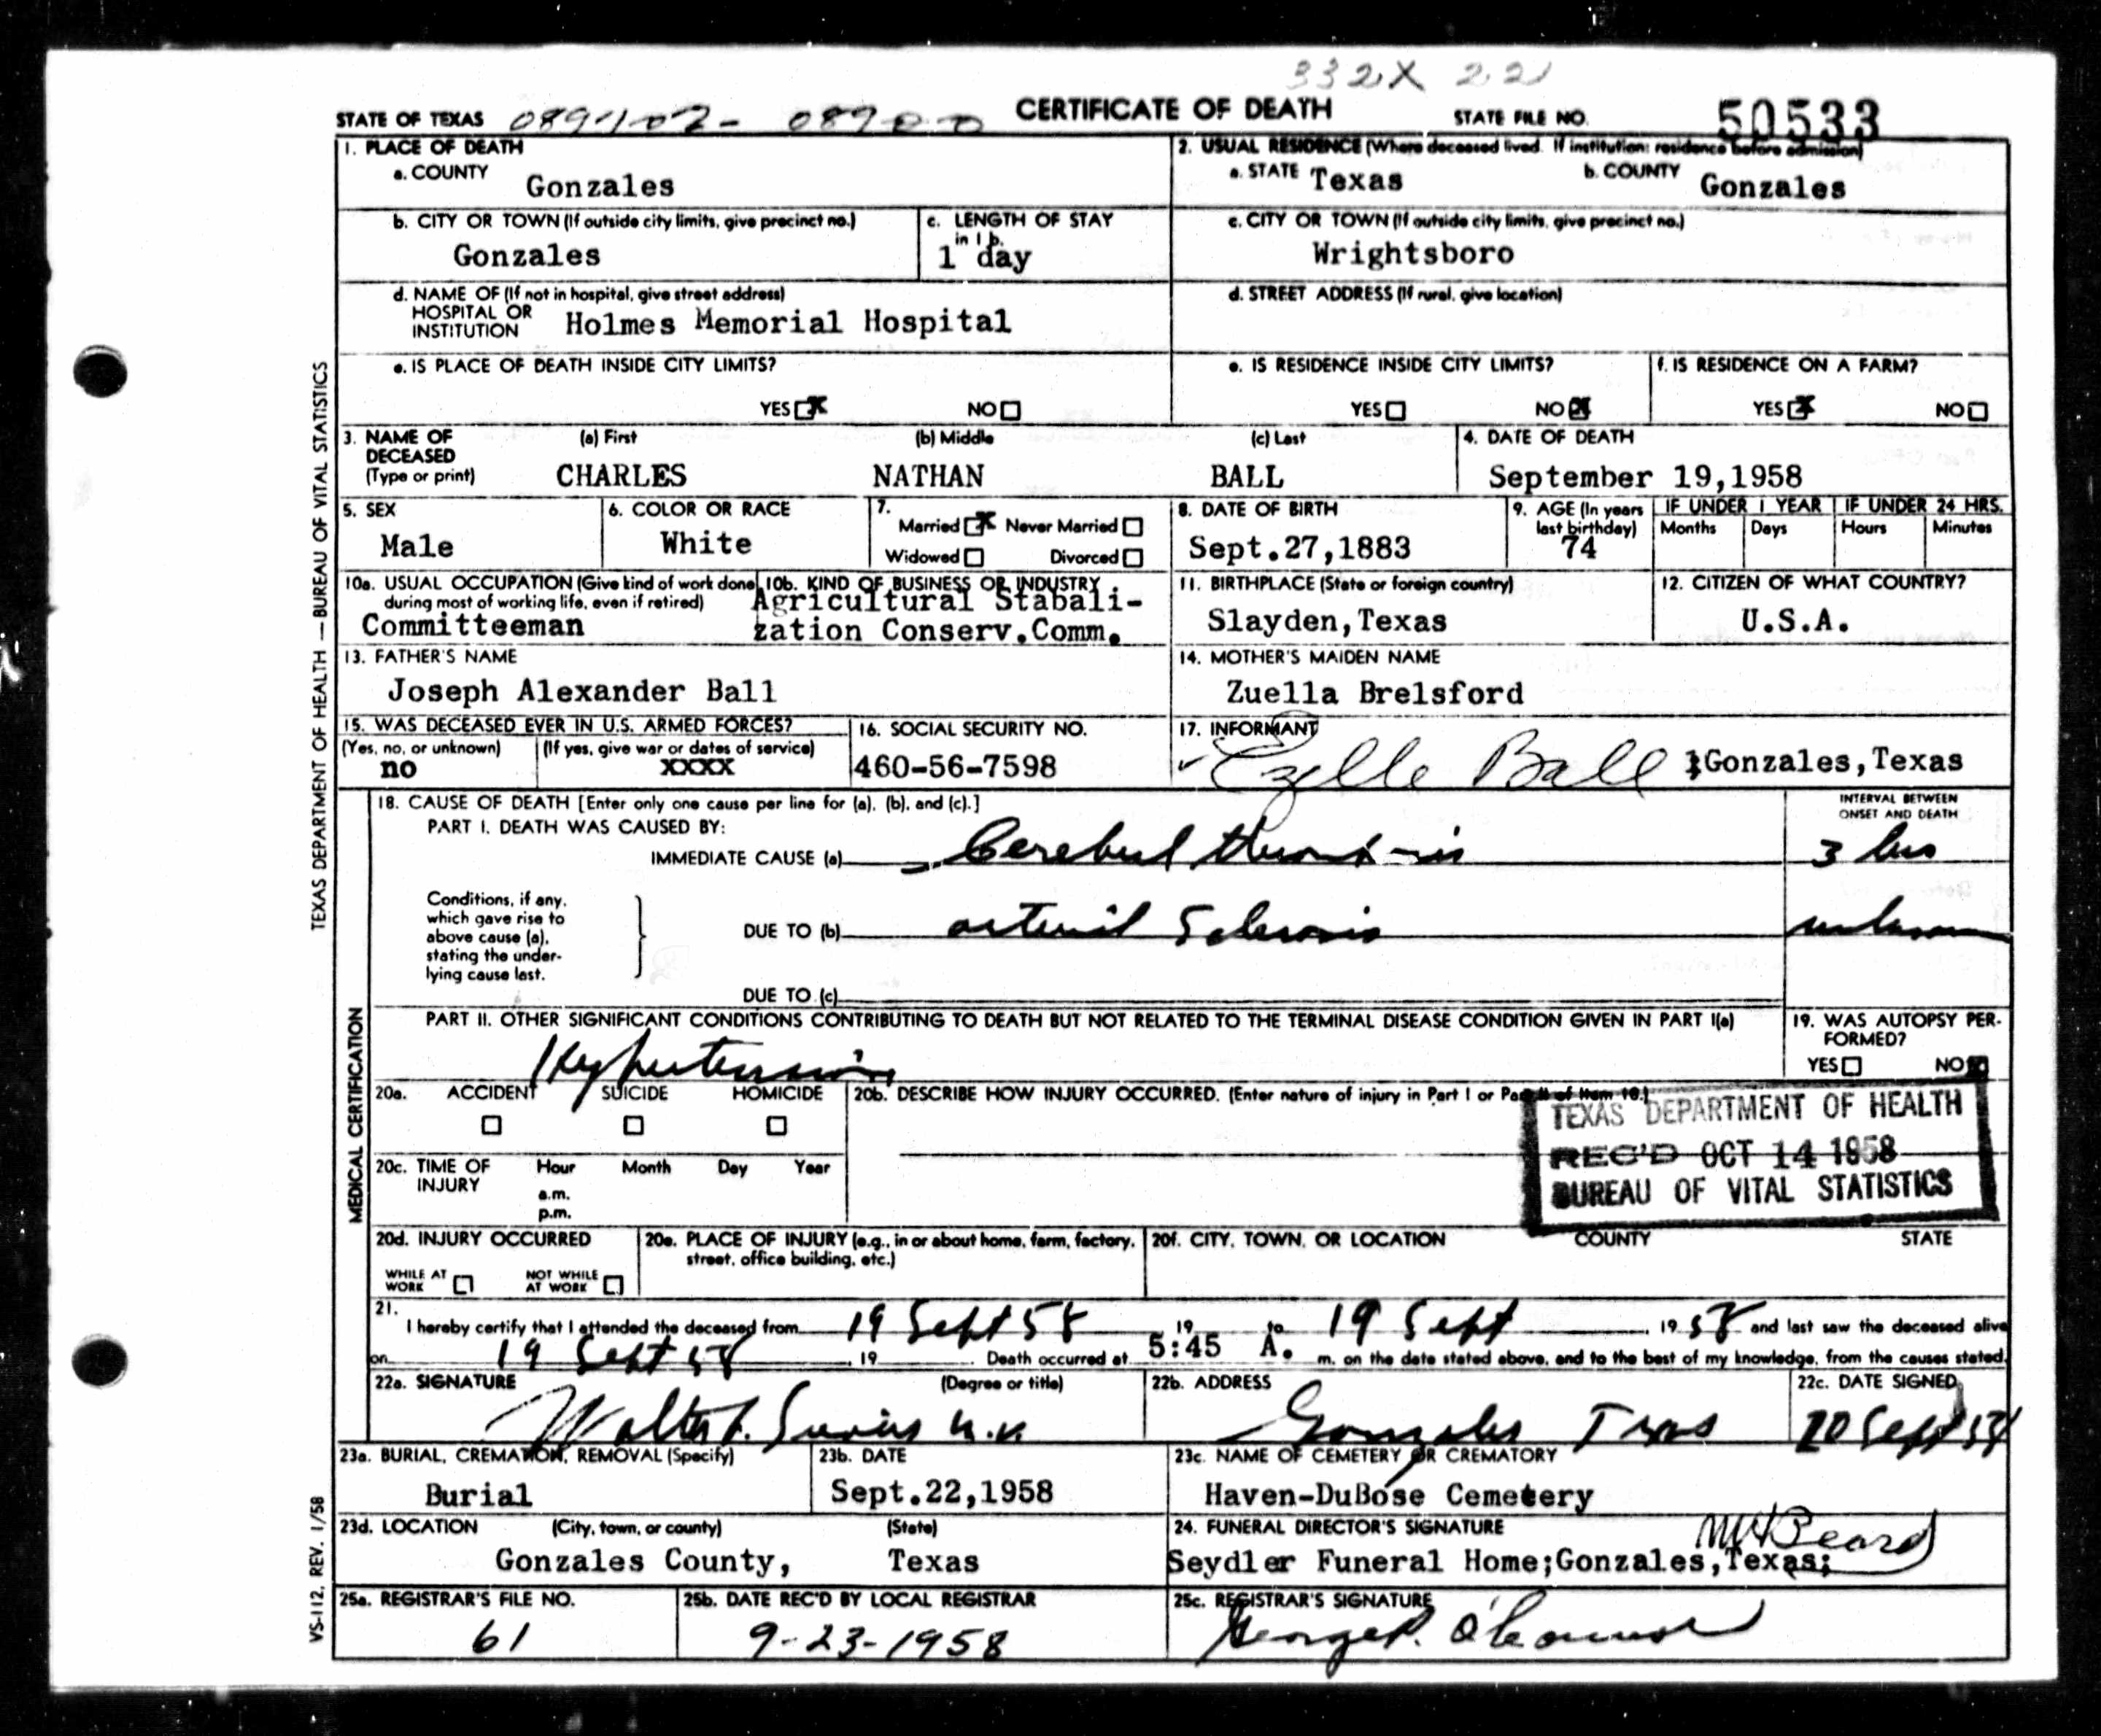 332X 221
STATE OF TEXAS CERTIFICATE OF DEATH STATE FILE NO. 50533
1. PLACE OF DEATH
a. COUNTY Gonzales
2. USUAL RESIDENCE (Where deceased lived. If institution: residence before admission)
a. STATE Texas b. COUNTY Gonzales
b. CITY OR TOWN (If outside city limits, give precinct no.) Gonzales
c. LENGTH OF STAY in 1 b. 1 day
c. CITY OR TOWN (If outside city limits, give precinct no.) Wrightsboro
d. NAME OF (If not in hospital, give street address)
HOSPITAL OR
INSTITUTION Holmes Memorial Hospital
d. STREET ADDRESS (If rural, give location)
e. IS PLACE OF DEATH INSIDE CITY LIMITS?
YES X NO
e. IS RESIDENCE INSIDE CITY LIMITS?
YES NO X
f. IS RESIDENCE ON A FARM?
YES X NO
3. NAME OF DECEASED (Type or print)
(a) First (b) Middle (c) Last
CHARLES NATHAN BALL
4. DATE OF DEATH
September 19,1958
5. SEX
Male
6. COLOR OR RACE
White
7.
Married X Never Married
Widowed Divorced
8. DATE OF BIRTH
Sept.27,1883
9. AGE (In years last birthday)
74
IF UNDER 1 YEAR
Months Days
IF UNDER 24 HRS.
Hours Minutes
10a. USUAL OCCUPATION (Give kind of work done during most of working life, even if retired)
Committeeman
10b. KIND OF BUSINESS OR INDUSTRY
Agricultural Stabali-
zation Conserv.Comm.
11. BIRTHPLACE (State or foreign country)
Slayden,Texas
12. CITIZEN OF WHAT COUNTRY?
U.S.A.
13. FATHER'S NAME
Joseph Alexander Ball
14. MOTHER'S MAIDEN NAME
Zuella Brelsford
15. WAS DECEASED EVER IN U.S. ARMED FORCES?
(Yes, no, or unknown) (If yes, give war or dates of service)
no xxxx
16. SOCIAL SECURITY NO.
460-56-7598
17. INFORMANT
Ezelle Ball Gonzales,Texas
18. CAUSE OF DEATH [Enter only one cause per line for (a), (b), and (c).]
INTERVAL BETWEEN
ONSET AND DEATH
PART I. DEATH WAS CAUSED BY:
IMMEDIATE CAUSE (a) Cerebral thrombosis 3 hrs
Conditions, if any,
which gave rise to
above cause (a),
stating the under-
lying cause last.
DUE TO (b) arterial Sclerosis unknown
DUE TO (c)
PART II. OTHER SIGNIFICANT CONDITIONS CONTRIBUTING TO DEATH BUT NOT RELATED TO THE TERMINAL DISEASE CONDITION GIVEN IN PART I(a)
Hypertension
19. WAS AUTOPSY PER-
FORMED?
YES NO
20a. ACCIDENT SUICIDE HOMICIDE
20b. DESCRIBE HOW INJURY OCCURRED. (Enter nature of injury in Part I or Part II of Item 18.)
TEXAS DEPARTMENT OF HEALTH
REC'D OCT 14 1958
BUREAU OF VITAL STATISTICS
20c. TIME OF INJURY
Hour Month Day Year
a.m.
p.m.
20d. INJURY OCCURRED
WHILE AT WORK NOT WHILE AT WORK
20e. PLACE OF INJURY (e.g., in or about home, farm, factory,
street, office building, etc.)
20f. CITY, TOWN, OR LOCATION COUNTY STATE
21.
I hereby certify that I attended the deceased from 19 Sept 58 19 to 19 Sept , 19 58 and last saw the deceased alive
on 19 Sept 58 , 19 . Death occurred at 5:45 A. m. on the date stated above, and to the best of my knowledge, from the causes stated.
22a. SIGNATURE (Degree or title)
Walter
22b. ADDRESS
Gonzales Texas
22c. DATE SIGNED
20 Sept 58
23a. BURIAL, CREMATION, REMOVAL (Specify)
Burial
23b. DATE
Sept.22,1958
23c. NAME OF CEMETERY OR CREMATORY
Haven-DuBose Cemetery
23d. LOCATION (City, town, or county) (State)
Gonzales County, Texas
24. FUNERAL DIRECTOR'S SIGNATURE
Beard
Seydler Funeral Home;Gonzales,Texas;
25a. REGISTRAR'S FILE NO.
61
25b. DATE REC'D BY LOCAL REGISTRAR
9-23-1958
25c. REGISTRAR'S SIGNATURE
George P. O'Connor
TEXAS DEPARTMENT OF HEALTH — BUREAU OF VITAL STATISTICS
MEDICAL CERTIFICATION
VS-112, REV. 1/58